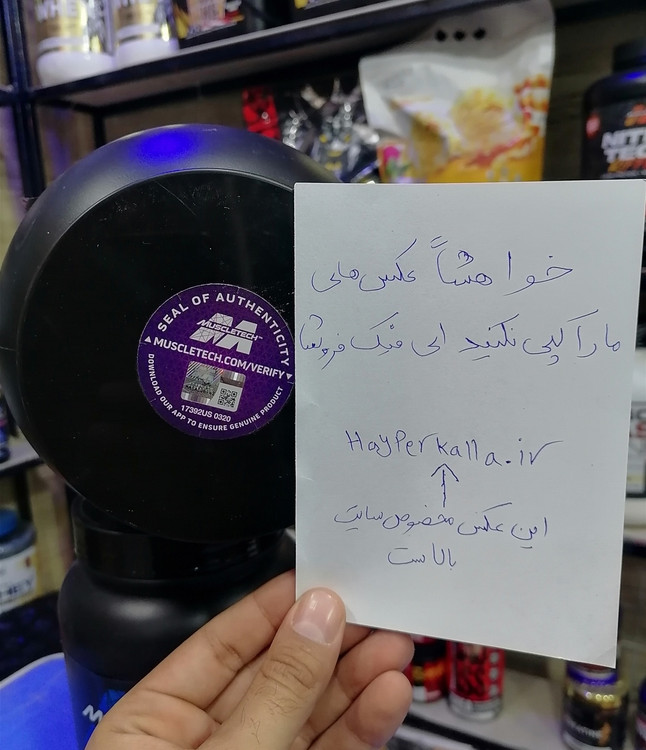 WHEY
NITRO
TECH
SEAL OF AUTHENTICITY
MUSCLETECH
▲ MUSCLETECH.COM/VERIFY ▲
17392US 0320
DOWNLOAD OUR APP TO ENSURE GENUINE PRODUCT
خواهشاً عکس های
ما را کپی نکنید ای فیک فروشا
HayPerkalla.ir
↑
این عکس مخصوص سایت
بالاست